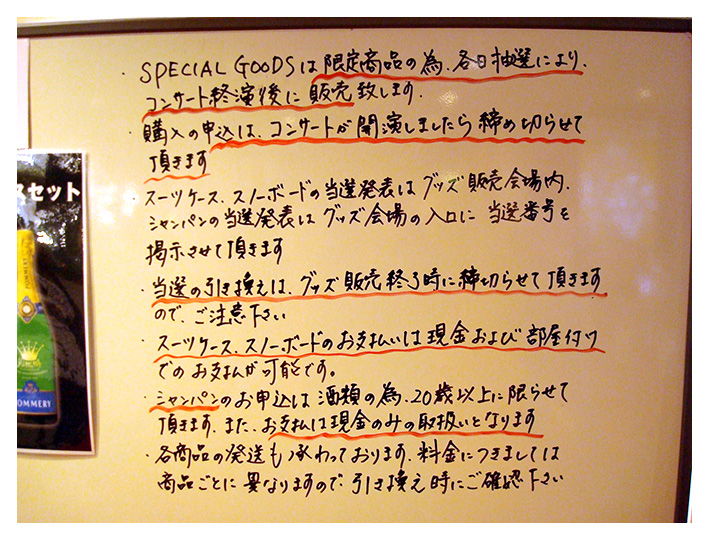 ・SPECIAL GOODSは限定商品の為、各日抽選により、
コンサート終演後に販売致します.
・購入の申込は、コンサートが開演しましたら締め切らせて
頂きます
・スーツケース、スノーボードの当選発表はグッズ販売会場内、
シャンパンの当選発表はグッズ会場の入口に当選番号を
掲示させて頂きます
・当選の引き換えは、グッズ販売終了時に締切らせて頂きます
ので、ご注意下さい
・スーツケース、スノーボードのお支払いは現金および部屋付け
でのお支払が可能です。
・シャンパンのお申込は酒類の為、20歳以上に限らせて
頂きます、また、お支払は現金のみの取扱いとなります
・各商品の発送も承わっております、料金につきましては
商品ごとに異なりますので引き換え時にご確認下さい
スセット
POMMERY
OMMERY